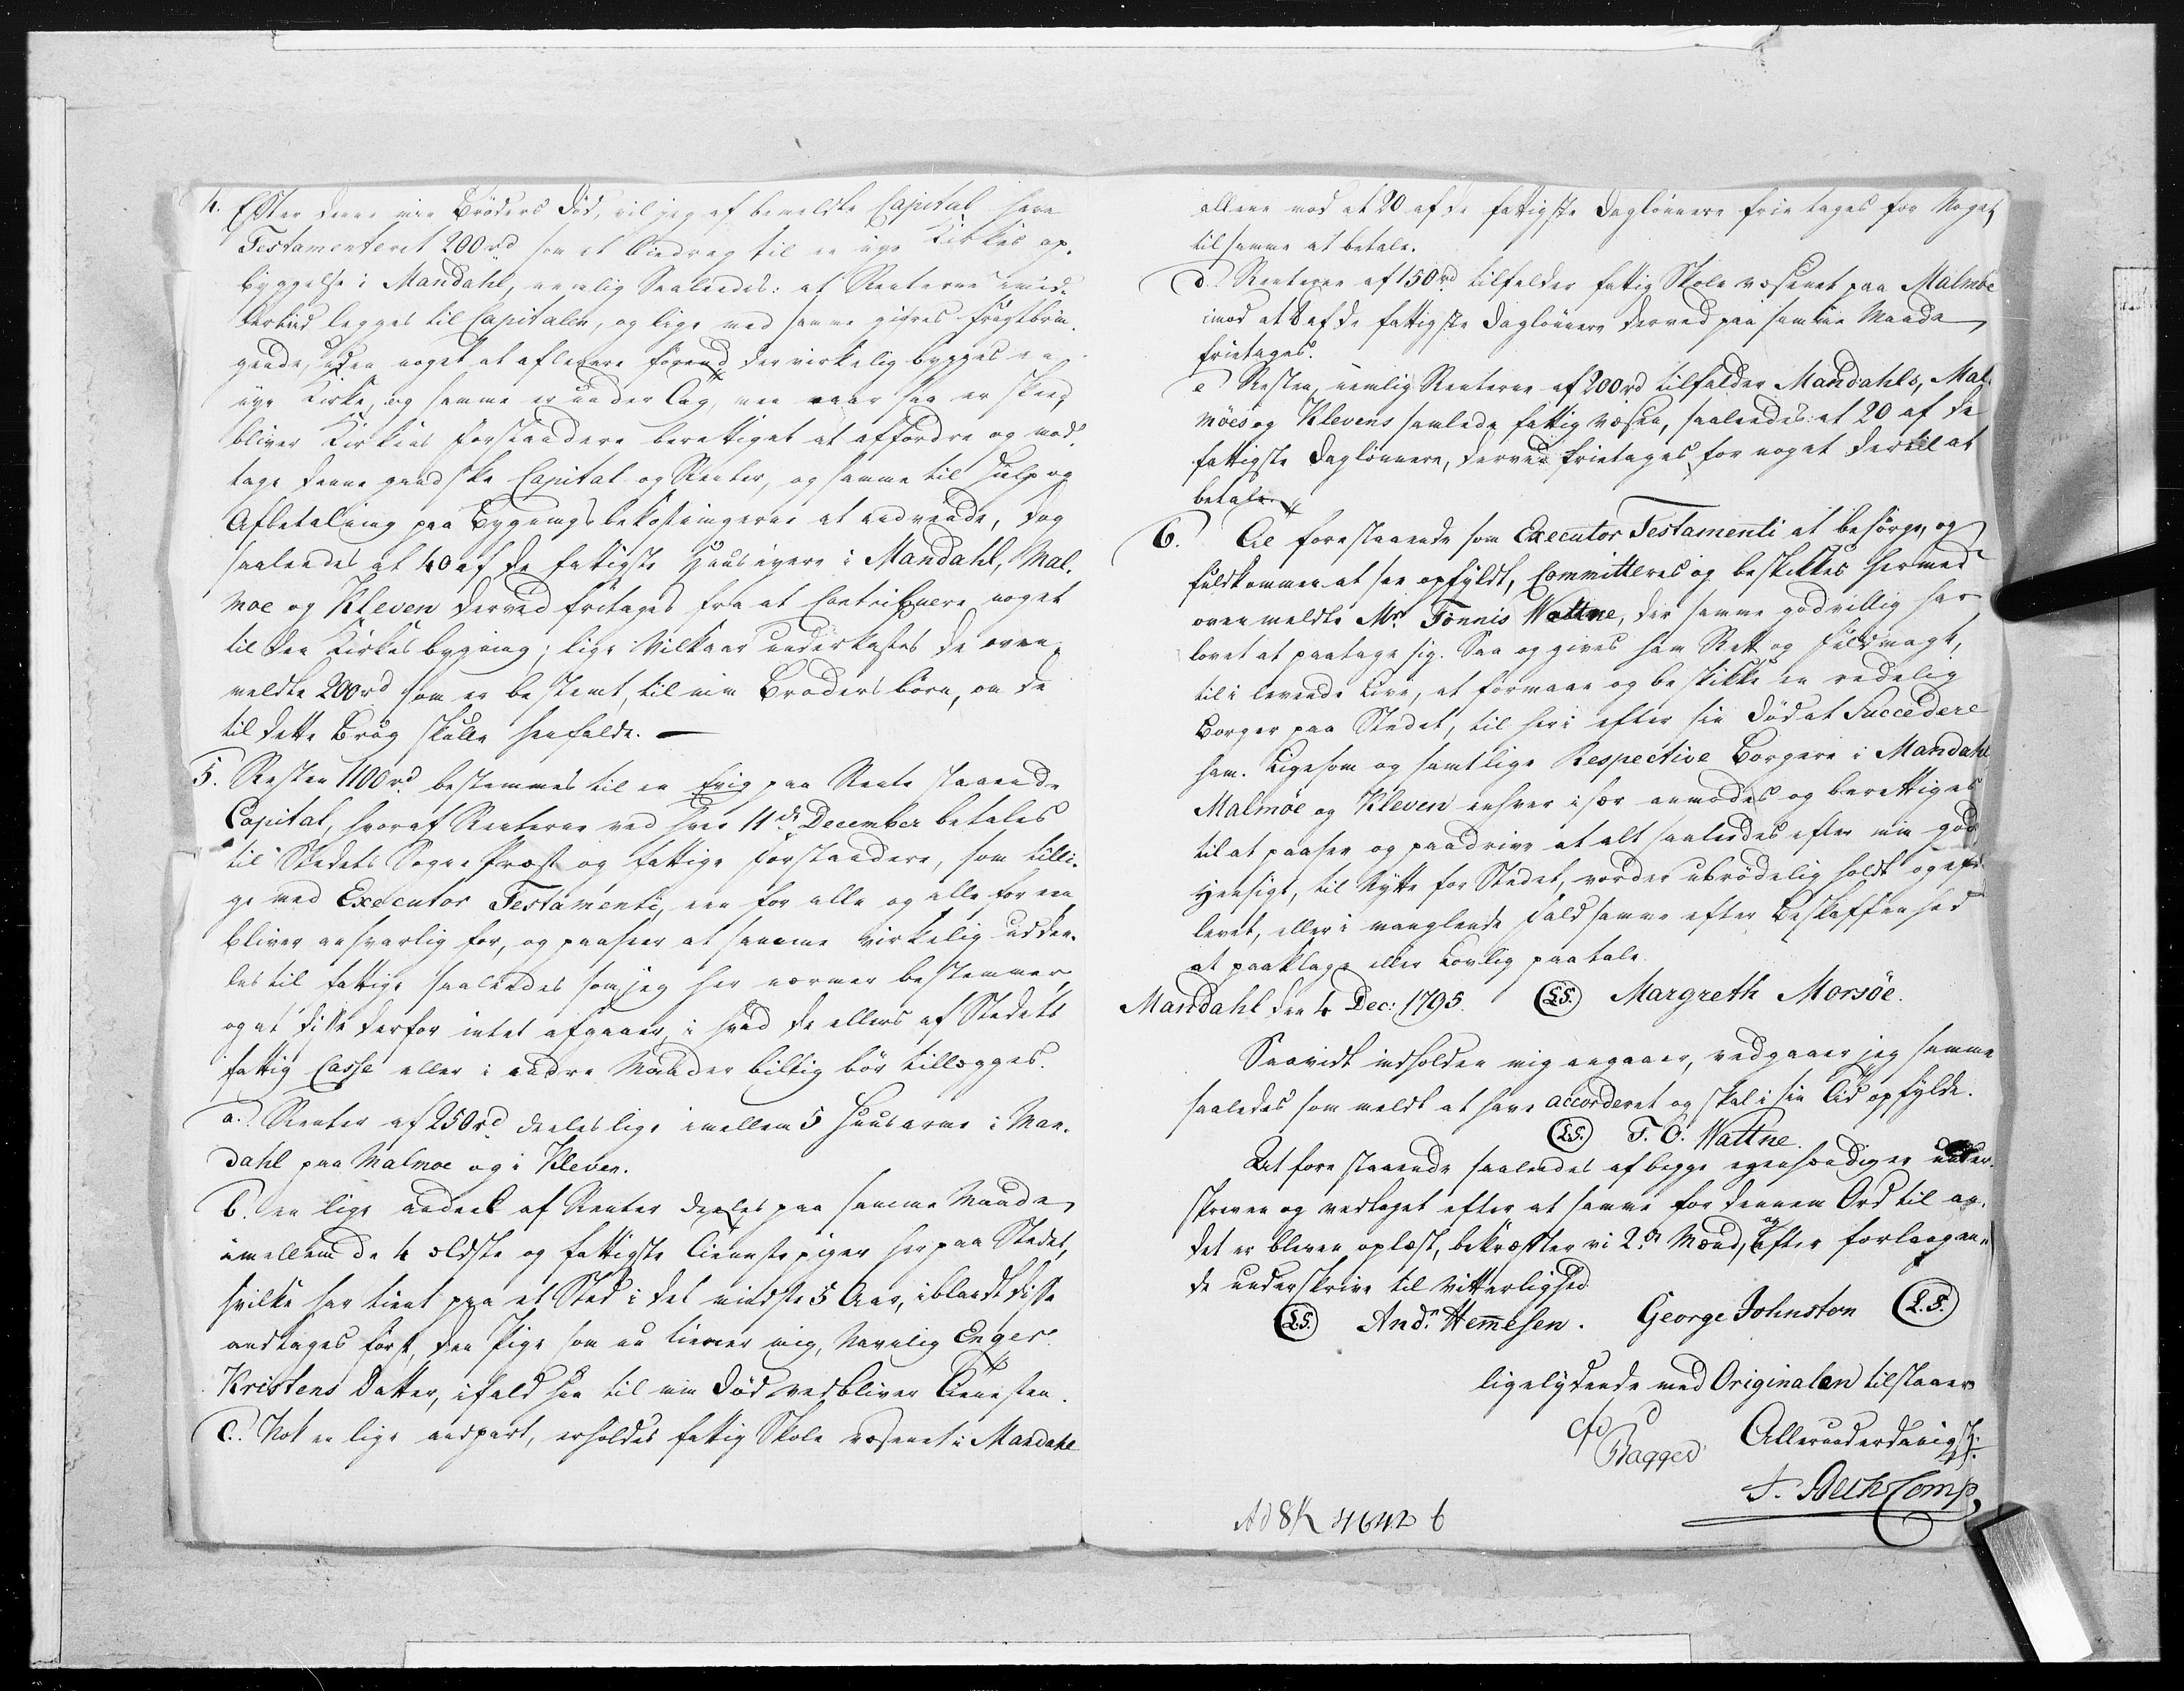 4. Efter denne min Broders Død, vil jeg af bemeldte Capital have
Testamenteret 200rd som et Biedrag til en nye Kirkes op-
byggelse i Mandahl, nemlig saaledes: at Renterne imid-
lertiid legges til Capitalen, og lige med samme giøres frugtbrin-
gende, uden noget at aflevere førend der virkelig bygges en
nye Kirke, og samme er under Tag, men naar saa er skeed,
bliver Kirkens Forstandere berettiget at affordre og mod-
tage denne gandske Capital og Renter, og samme til Hielp og
Afbetaling paa Bygningsbekostningerne at anvende, dog
saaledes at 40 af de fattigste Huus ejere i Mandahl, Mal-
moe og Kleven derved fritages fra at Contribuere noget
til den Kirkes bygning; lige Vilkaar underkastes de oven-
meldte 200rd som er bestemt, til min Broders børn, om de
til dette Brug skulle henfalde. —
5. Resten 1100rd bestemmes til en Evig paa Rente staaende
Capital, hvoraf Renterne ved hver 11de December betales
til Stedets Sogne Præst og Fattige Forstandere, som tilli-
ge med Executor Testamenti, een for alle og alle for een
bliver ansvarlig for, og paaseer at samme virkelig uddee-
les til Fattige saaledes som jeg her nærmer bestemmer,
og at disse derfor intet afgaaer, i hvad de ellers af Stedets
fattig Casse eller i andre Maader billig bør tillægges.
a. Renter af 250rd deeles lige imellem 5 Huusarme i Man-
dahl paa Malmoe og i Kleven.
b. en lige andeel af Renter deeles paa samme Maade
imellem de 4 ældste og fattigste Tienestepiger her paa Stedet,
hvilke har tient paa et Sted i det mindste 5 Aar, iblandt disse
andtages først, den Pige som nu tiener mig, Navnlig Enger
Kristens Datter, ifald hun til min Død vedbliver Tienesten.
C. Nok en lige andpart, erholdes fattig Skole væsenet i Mandahl
allene mod at 20 af de fattigste Daglønnere frie tages for Noget
til samme at betale.
d. Renterne af 150rd tilfalder fattig Skole væsenet paa Malmöe
imod at 8 af de fattigste Daglønnere derved paa samme Maade
frietages.
e Resten, nemlig Renterne af 200rd tilfalder Mandahls, Mal-
möes og Klevens samlede fattig væsen, saaledes at 20 af de
fattigste Daglønnere, derved frietages for noget dertil at
betale.
6. Alt forestaaende som Executor Testamenti at besørge, og
fuldkommen at see opfyldt, Committeres og beskikkes hermed
ovenmeldte Mr. Tönnis Wattne, der samme godvillig har
lovet at paatage sig. Saa og gives ham Rett og Fuldmagt,
til i levende Live, at formaae og beskikke en redelig
Borger paa Stedet, til heri efter sin Død at Succedere
ham. Ligesom og samtlige Respective Borgere i Mandahl
Malmöe og Kleven enhver især anmodes og berettiges
til at paasee og paadrive at alt saaledes efter min god
Hensigt, til Nytte for Stedet, vorder ubrødelig holdt og ef-
levet, eller i manglende Fald samme efter Beskaffenhed
at paaklage eller Lovlig paatale.
Mandahl den 4 Dec: 1795. (L.S.) Margreth Morsöe.
Saavidt indholden mig angaaer, vedgaaer jeg samme
saaledes som meldt at have accorderet og skal i sin Tid opfylde.
(L.S.) T. O. Wattne.
At forestaaende saaledes af begge egenhændigen under-
skreven og vedtaget efter at samme for dennem Ord til an-
det er bleven oplæst, bekræfter vi 2de Mænd, og efter forlangen-
de underskrive til Vitterlighed
(L.S.) Andr. Hemmesen. George Johnston (L.S.)
ligelydende med Originalen tilstaaer
Cfd Bagger Allerunderdanigst:
Ad 8K 4642 b